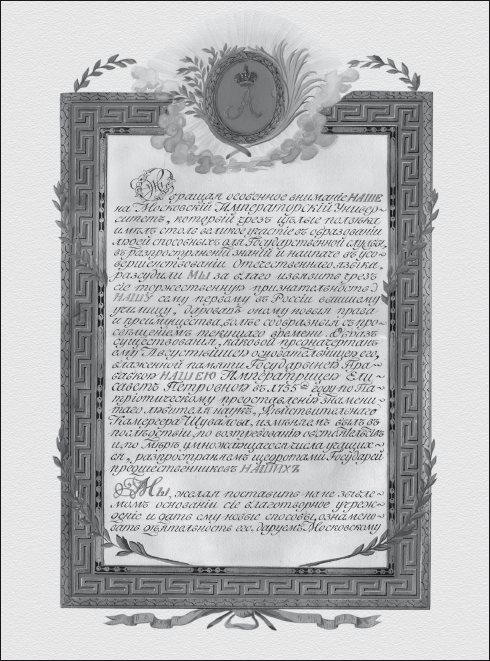 Обращая особенное вниманіе НАШЕ
на Московскій Императорскій Универ-
ситетъ, который чрезъ цѣлые полвѣка
имѣлъ столь великое участіе въ образованіи
людей способныхъ для Государственной службы,
въ распространеніи знаній и наипаче въ усо-
вершенствованіи Отечественнаго языка,
разсудили МЫ за благо изъявить чрезъ
сіе торжественную признательность
НАШУ сему первому въ Россіи вышнему
училищу, даровавъ оному новыя права
и преимущества, болѣе сообразныя съ про-
свѣщеніемъ текущаго времени. Образъ
существованія, каковой предначертанъ
ему Августѣйшею основательницею его,
блаженной памяти Государынею Пра-
бабкою НАШЕЮ Императрицею Ели-
саветъ Петровною въ 1755 году по Па-
тріотическому представленію знамени-
таго любителя наукъ, Дѣйствительнаго
Камергера Шувалова, измѣняемъ былъ въ
послѣдствіи, по востребованію обстоятельствъ
и по мѣрѣ умножающагося числа учащих-
ся, распространяемъ щедротами Государей
предшественниковъ НАШИХЪ.
МЫ, желая поставить на незыбле-
момъ основаніи сіе благотворное учреж-
деніе и дать ему новые способы, ознамено-
вать дѣятельность его, даруемъ Московскому